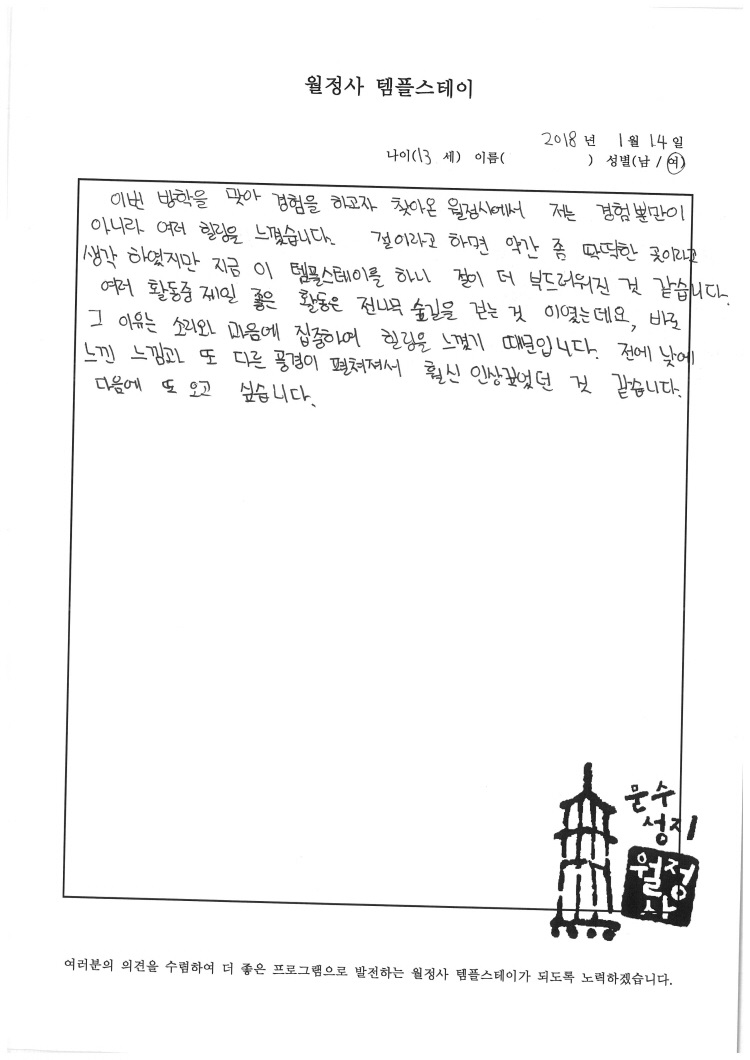 월정사 템플스테이
2018 년 1 월 14 일
나이(13 세) 이름( ) 성별(남 / 여)
이번 방학을 맞아 경험을 하고자 찾아온 월정사에서 저는 경험뿐만이
아니라 여러 힐링을 느꼈습니다. 절이라고 하면 약간 좀 딱딱한 곳이라고
생각 하였지만 지금 이 템플스테이를 하니 절이 더 부드러워진 것 같습니다.
여러 활동중 제일 좋은 활동은 전나무 숲길을 걷는 것 이였는데요, 바로
그 이유는 소리와 마음에 집중하여 힐링을 느꼈기 때문입니다. 전에 낮에
느낀 느낌과 또 다른 풍경이 펼쳐져서 훨신 인상깊었던 것 같습니다.
다음에 또 오고 싶습니다.
문수
성지
월정
사
여러분의 의견을 수렴하여 더 좋은 프로그램으로 발전하는 월정사 템플스테이가 되도록 노력하겠습니다.